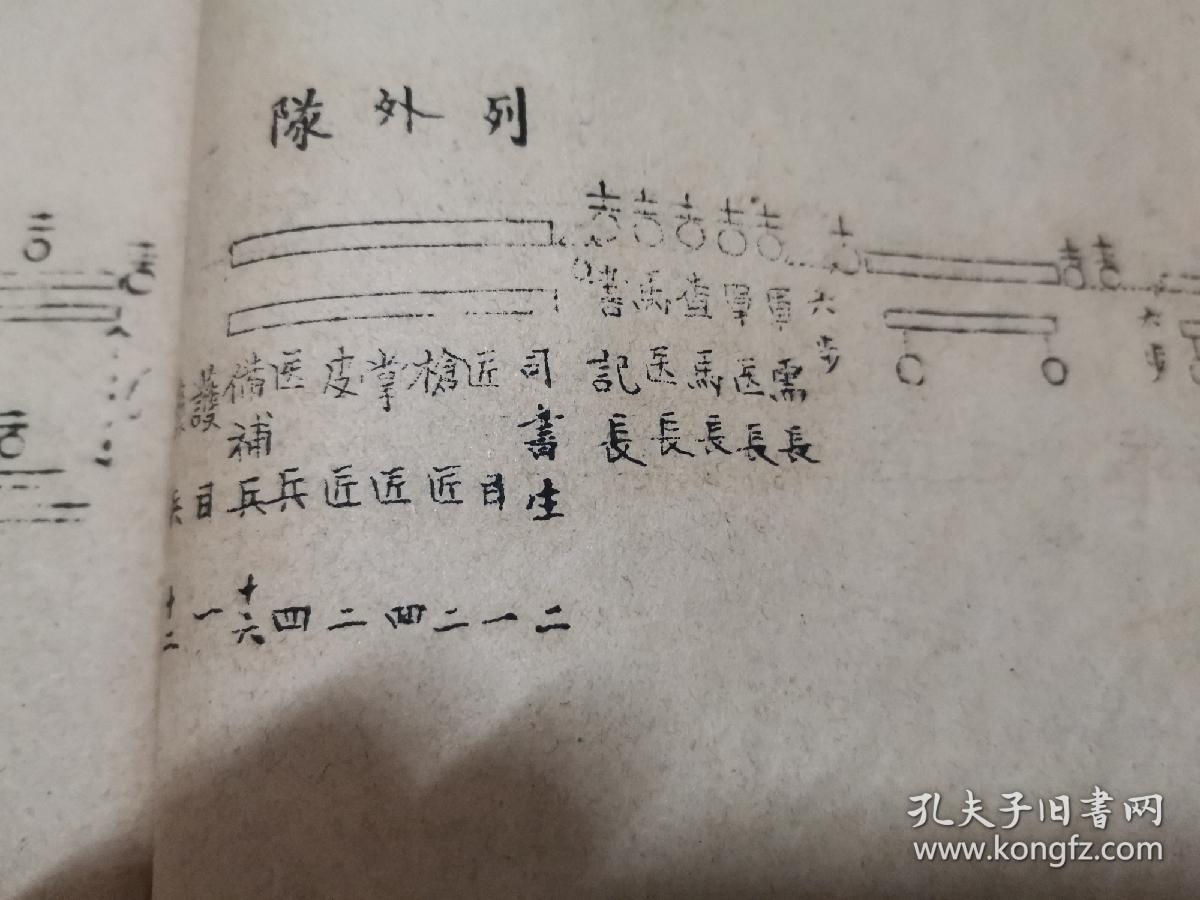 列外隊
六步
六步
軍需長
軍医長
查馬長
馬医長
書記長
司書生 二
匠目 一
槍匠 二
掌匠 四
皮匠 二
医兵 四
備補兵 十六
護目 一
兵 十二
孔夫子旧書网
www.kongfz.com